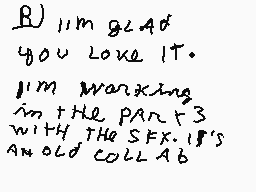 Ⓑ I'm glad
you love it.
I'm working
in the part 3
with the SFX. It's
an old collab